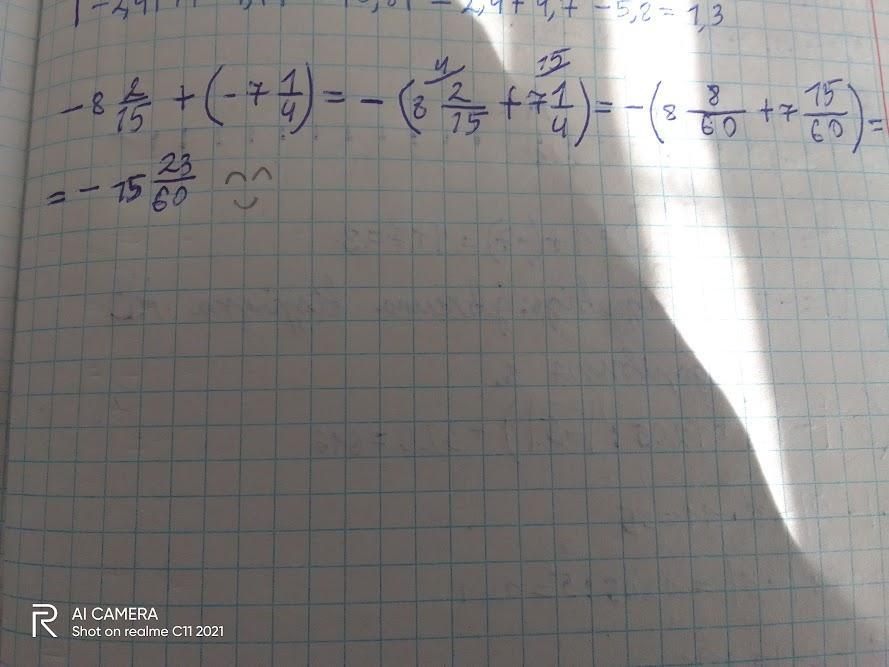 = 2,4 + 4,7 - 5,8 = 1,3
4 15
-8 2/15 + (-7 1/4) = -(8 2/15 + 7 1/4) = -(8 8/60 + 7 15/60) =
= -15 23/60
R AI CAMERA
Shot on realme C11 2021